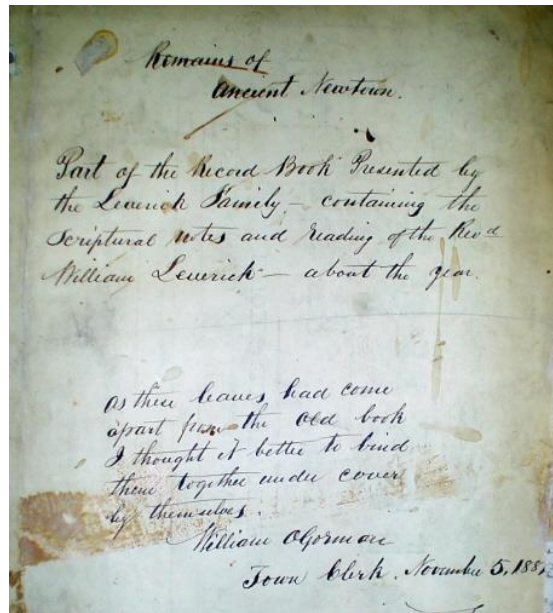 Remains of
Ancient Newtown.
Part of the Record Book Presented by
the Leverich Family – containing the
Scriptural notes and reading of the Revd
William Leverich – about the year.
As these leaves had come
apart from the old book
I thought it better to bind
them together under cover
by themselves.
William OGorman
Town Clerk. November 5, 188